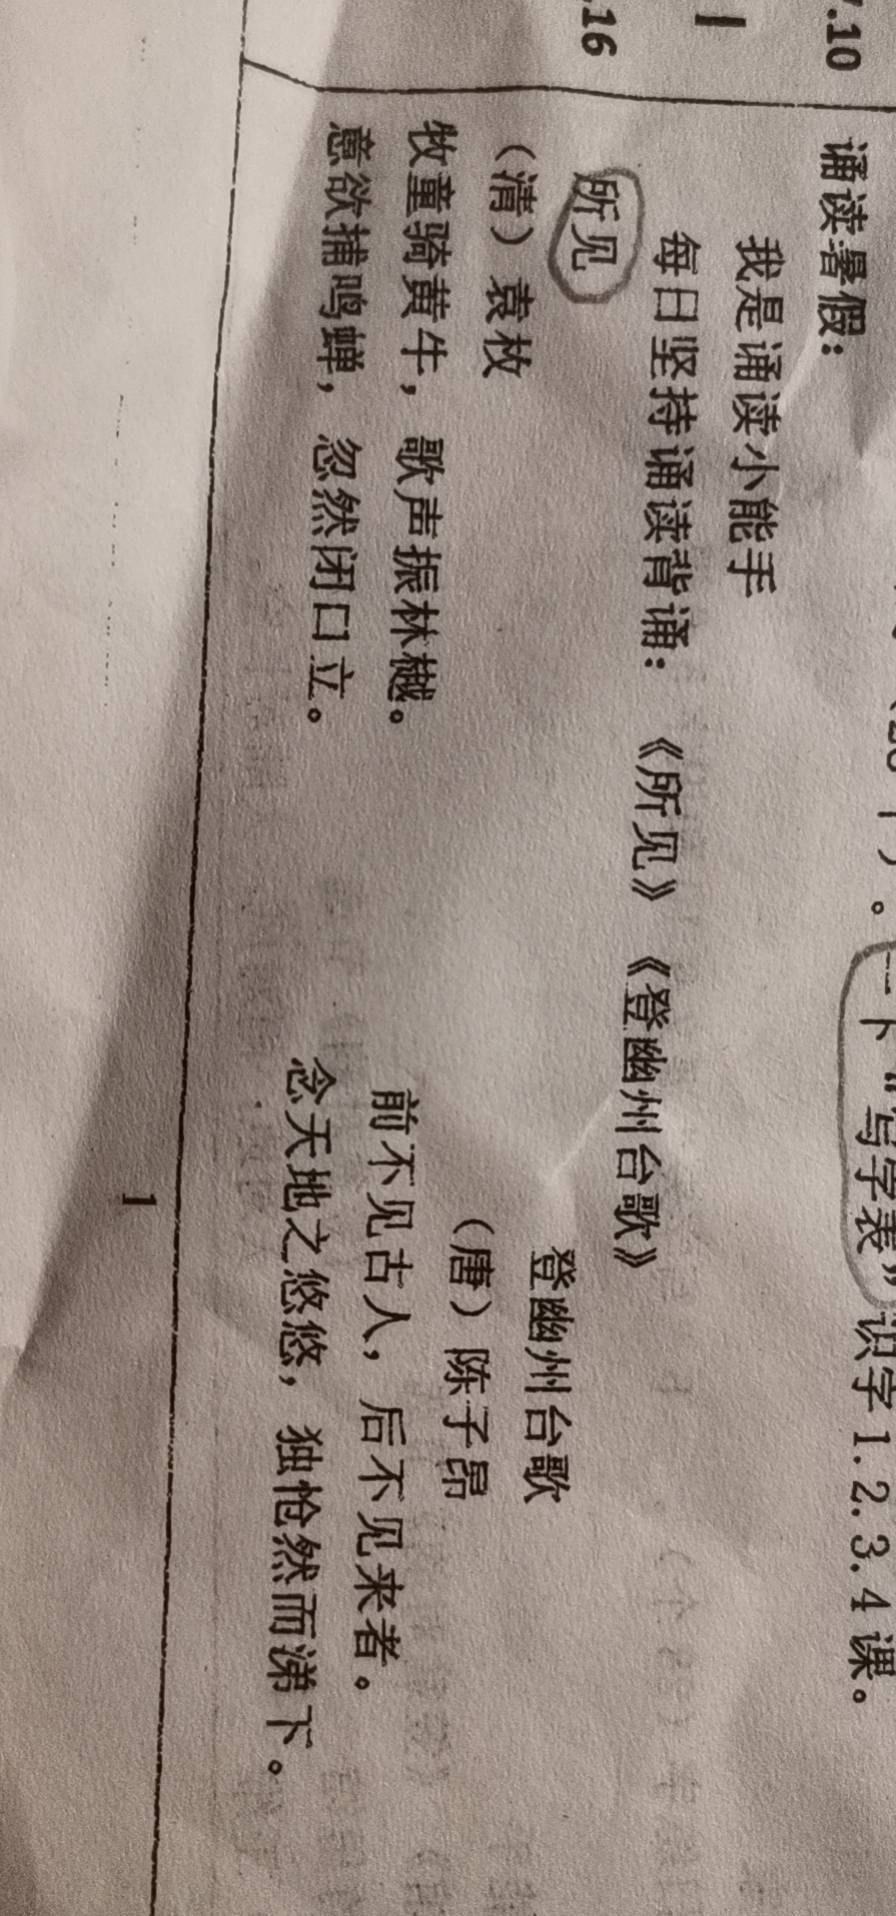 下“写字表”识字1.2.3.4课。
.10
诵读暑假：
我是诵读小能手
每日坚持诵读背诵：《所见》《登幽州台歌》
.16
所见
登幽州台歌
（清）袁枚
（唐）陈子昂
牧童骑黄牛，歌声振林樾。
前不见古人，后不见来者。
意欲捕鸣蝉，忽然闭口立。
念天地之悠悠，独怆然而涕下。
1